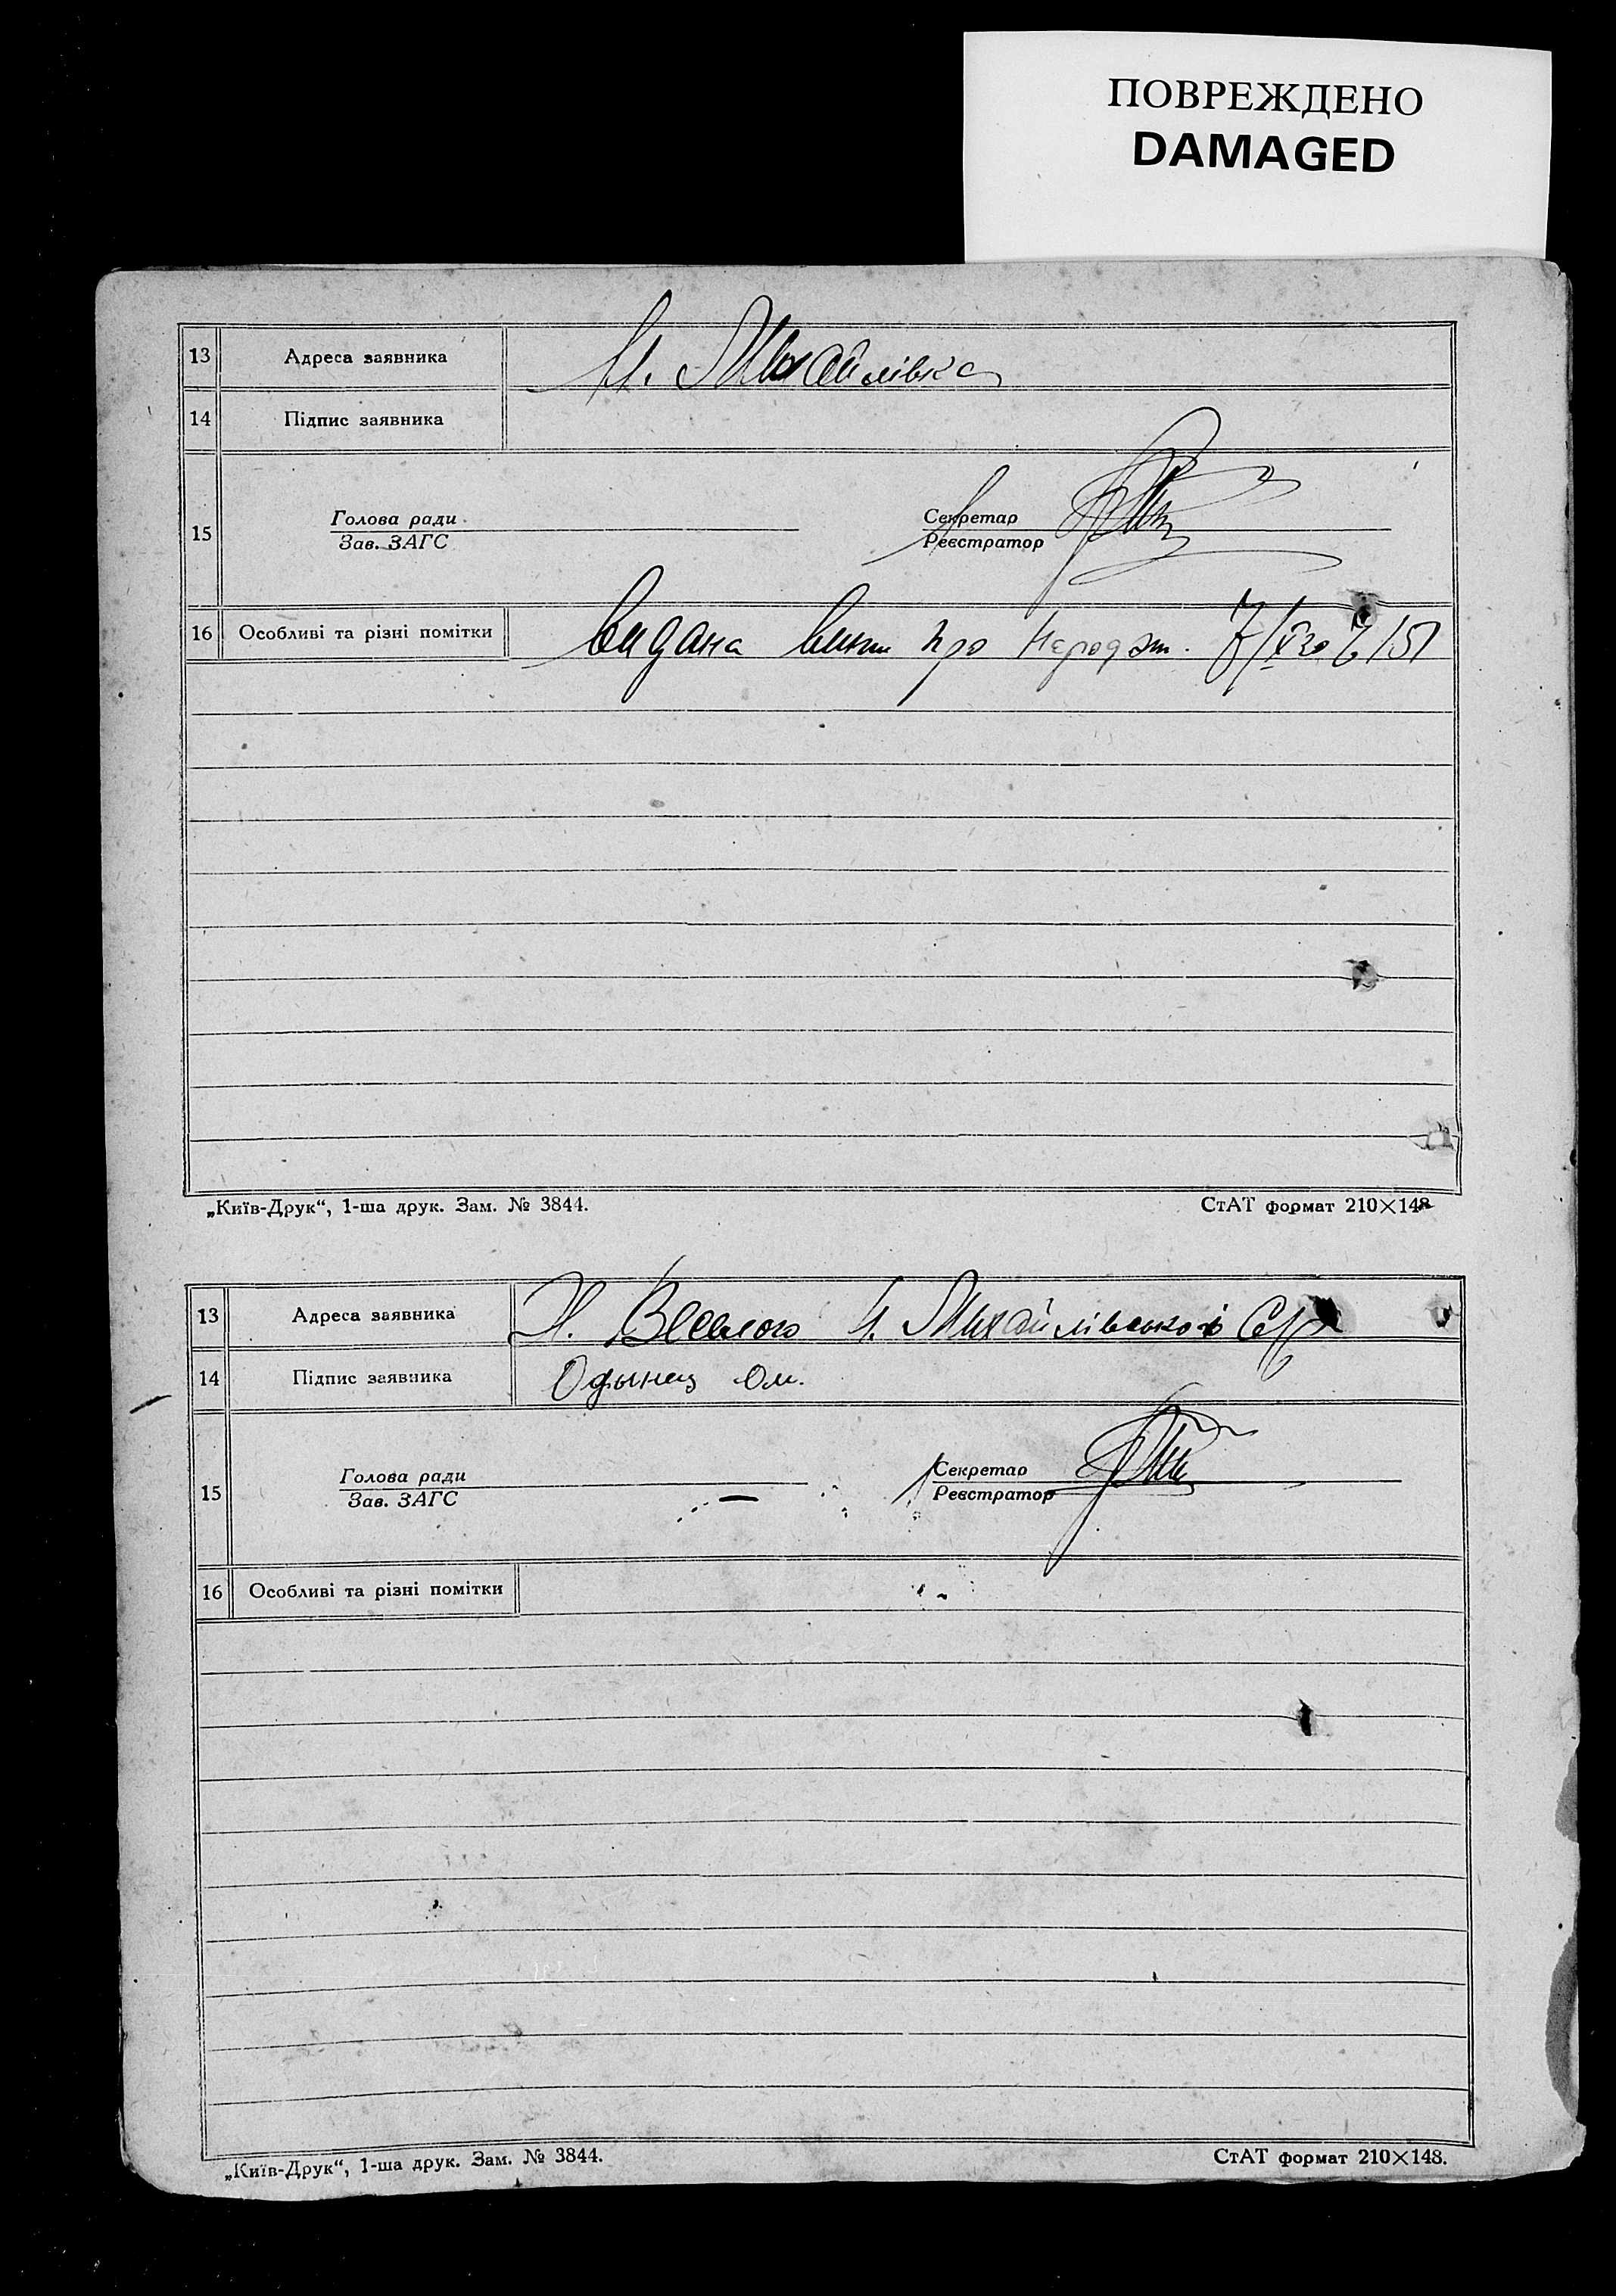 ПОВРЕЖДЕНО
DAMAGED
13 Адреса заявника Михайлівка
14 Підпис заявника
Голова ради Секретар
15
Зав. ЗАГС Реєстратор
16 Особливі та різні помітки видана про народж.
„Київ-Друк“, 1-ша друк. Зам. № 3844. СтАТ формат 210×148
13 Адреса заявника Х. Веселого Михайлівської С/р
14 Підпис заявника Одынец
Голова ради Секретар
15
Зав. ЗАГС Реєстратор
16 Особливі та різні помітки
„Київ-Друк“, 1-ша друк. Зам. № 3844. СтАТ формат 210×148.